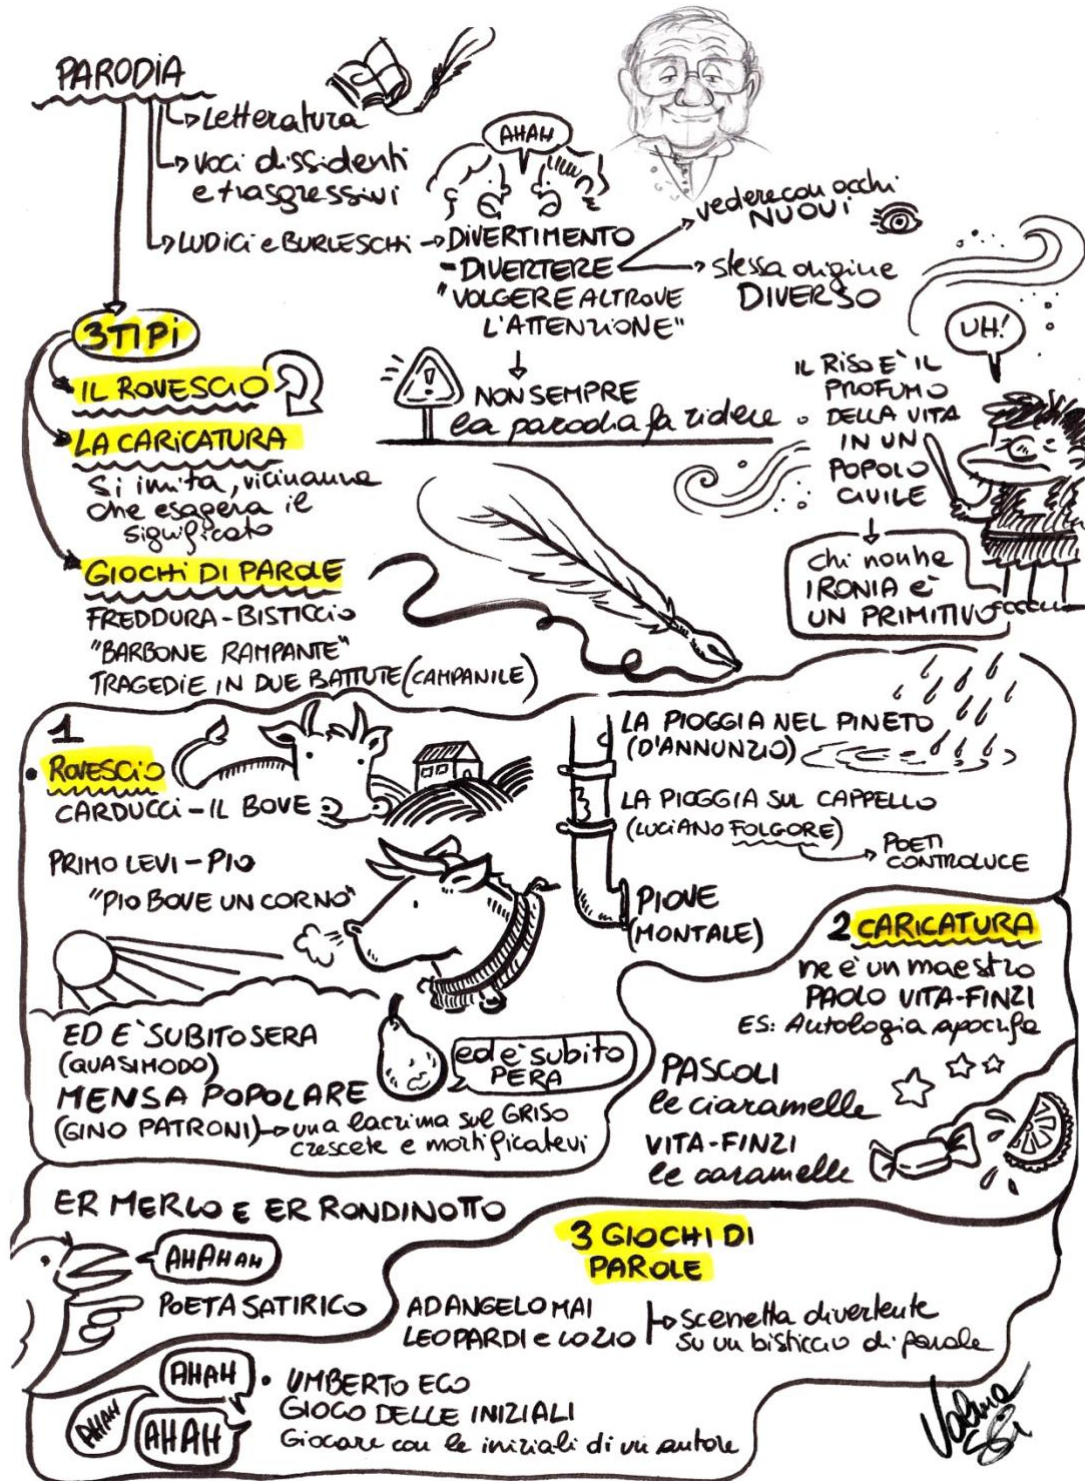 PARODIA
Letteratura
voci dissidenti
e trasgressivi
LUDICI e BURLESCHI
AHAH
DIVERTIMENTO
-DIVERTERE
"VOLGERE ALTROVE
L'ATTENZIONE"
vedere con occhi
NUOVI
stessa origine
DIVERSO
NON SEMPRE
la parodia fa ridere
UH!
IL RISO E' IL
PROFUMO
DELLA VITA
IN UN
POPOLO
CIVILE
chi non ha
IRONIA è
UN PRIMITIVO
3 TIPI
IL ROVESCIO
LA CARICATURA
si imita, vicinanza
che esagera il
significato
GIOCHI DI PAROLE
FREDDURA-BISTICCIO
"BARBONE RAMPANTE"
TRAGEDIE IN DUE BATTUTE (CAMPANILE)
1
ROVESCIO
CARDUCCI-IL BOVE
PRIMO LEVI-PIO
"PIO BOVE UN CORNO"
LA PIOGGIA NEL PINETO
(D'ANNUNZIO)
LA PIOGGIA SUL CAPPELLO
(LUCIANO FOLGORE)
POETI
CONTROLUCE
PIOVE
(MONTALE)
ED E' SUBITO SERA
(QUASIMODO)
ed è subito
PERA
MENSA POPOLARE
(GINO PATRONI) una lacrima sul GRISO
crescete e mortificatevi
2 CARICATURA
ne è un maestro
PAOLO VITA-FINZI
ES: Antologia apocrifa
PASCOLI
le ciaramelle
VITA-FINZI
le caramelle
ER MERLO E ER RONDINOTTO
AHAHAH
POETA SATIRICO
3 GIOCHI DI
PAROLE
AD ANGELO MAI
LEOPARDI e LO ZIO
scenetta divertente
su un bisticcio di parole
AHAH
AHAH
AHAH
• UMBERTO ECO
GIOCO DELLE INIZIALI
Giocare con le iniziali di un autore